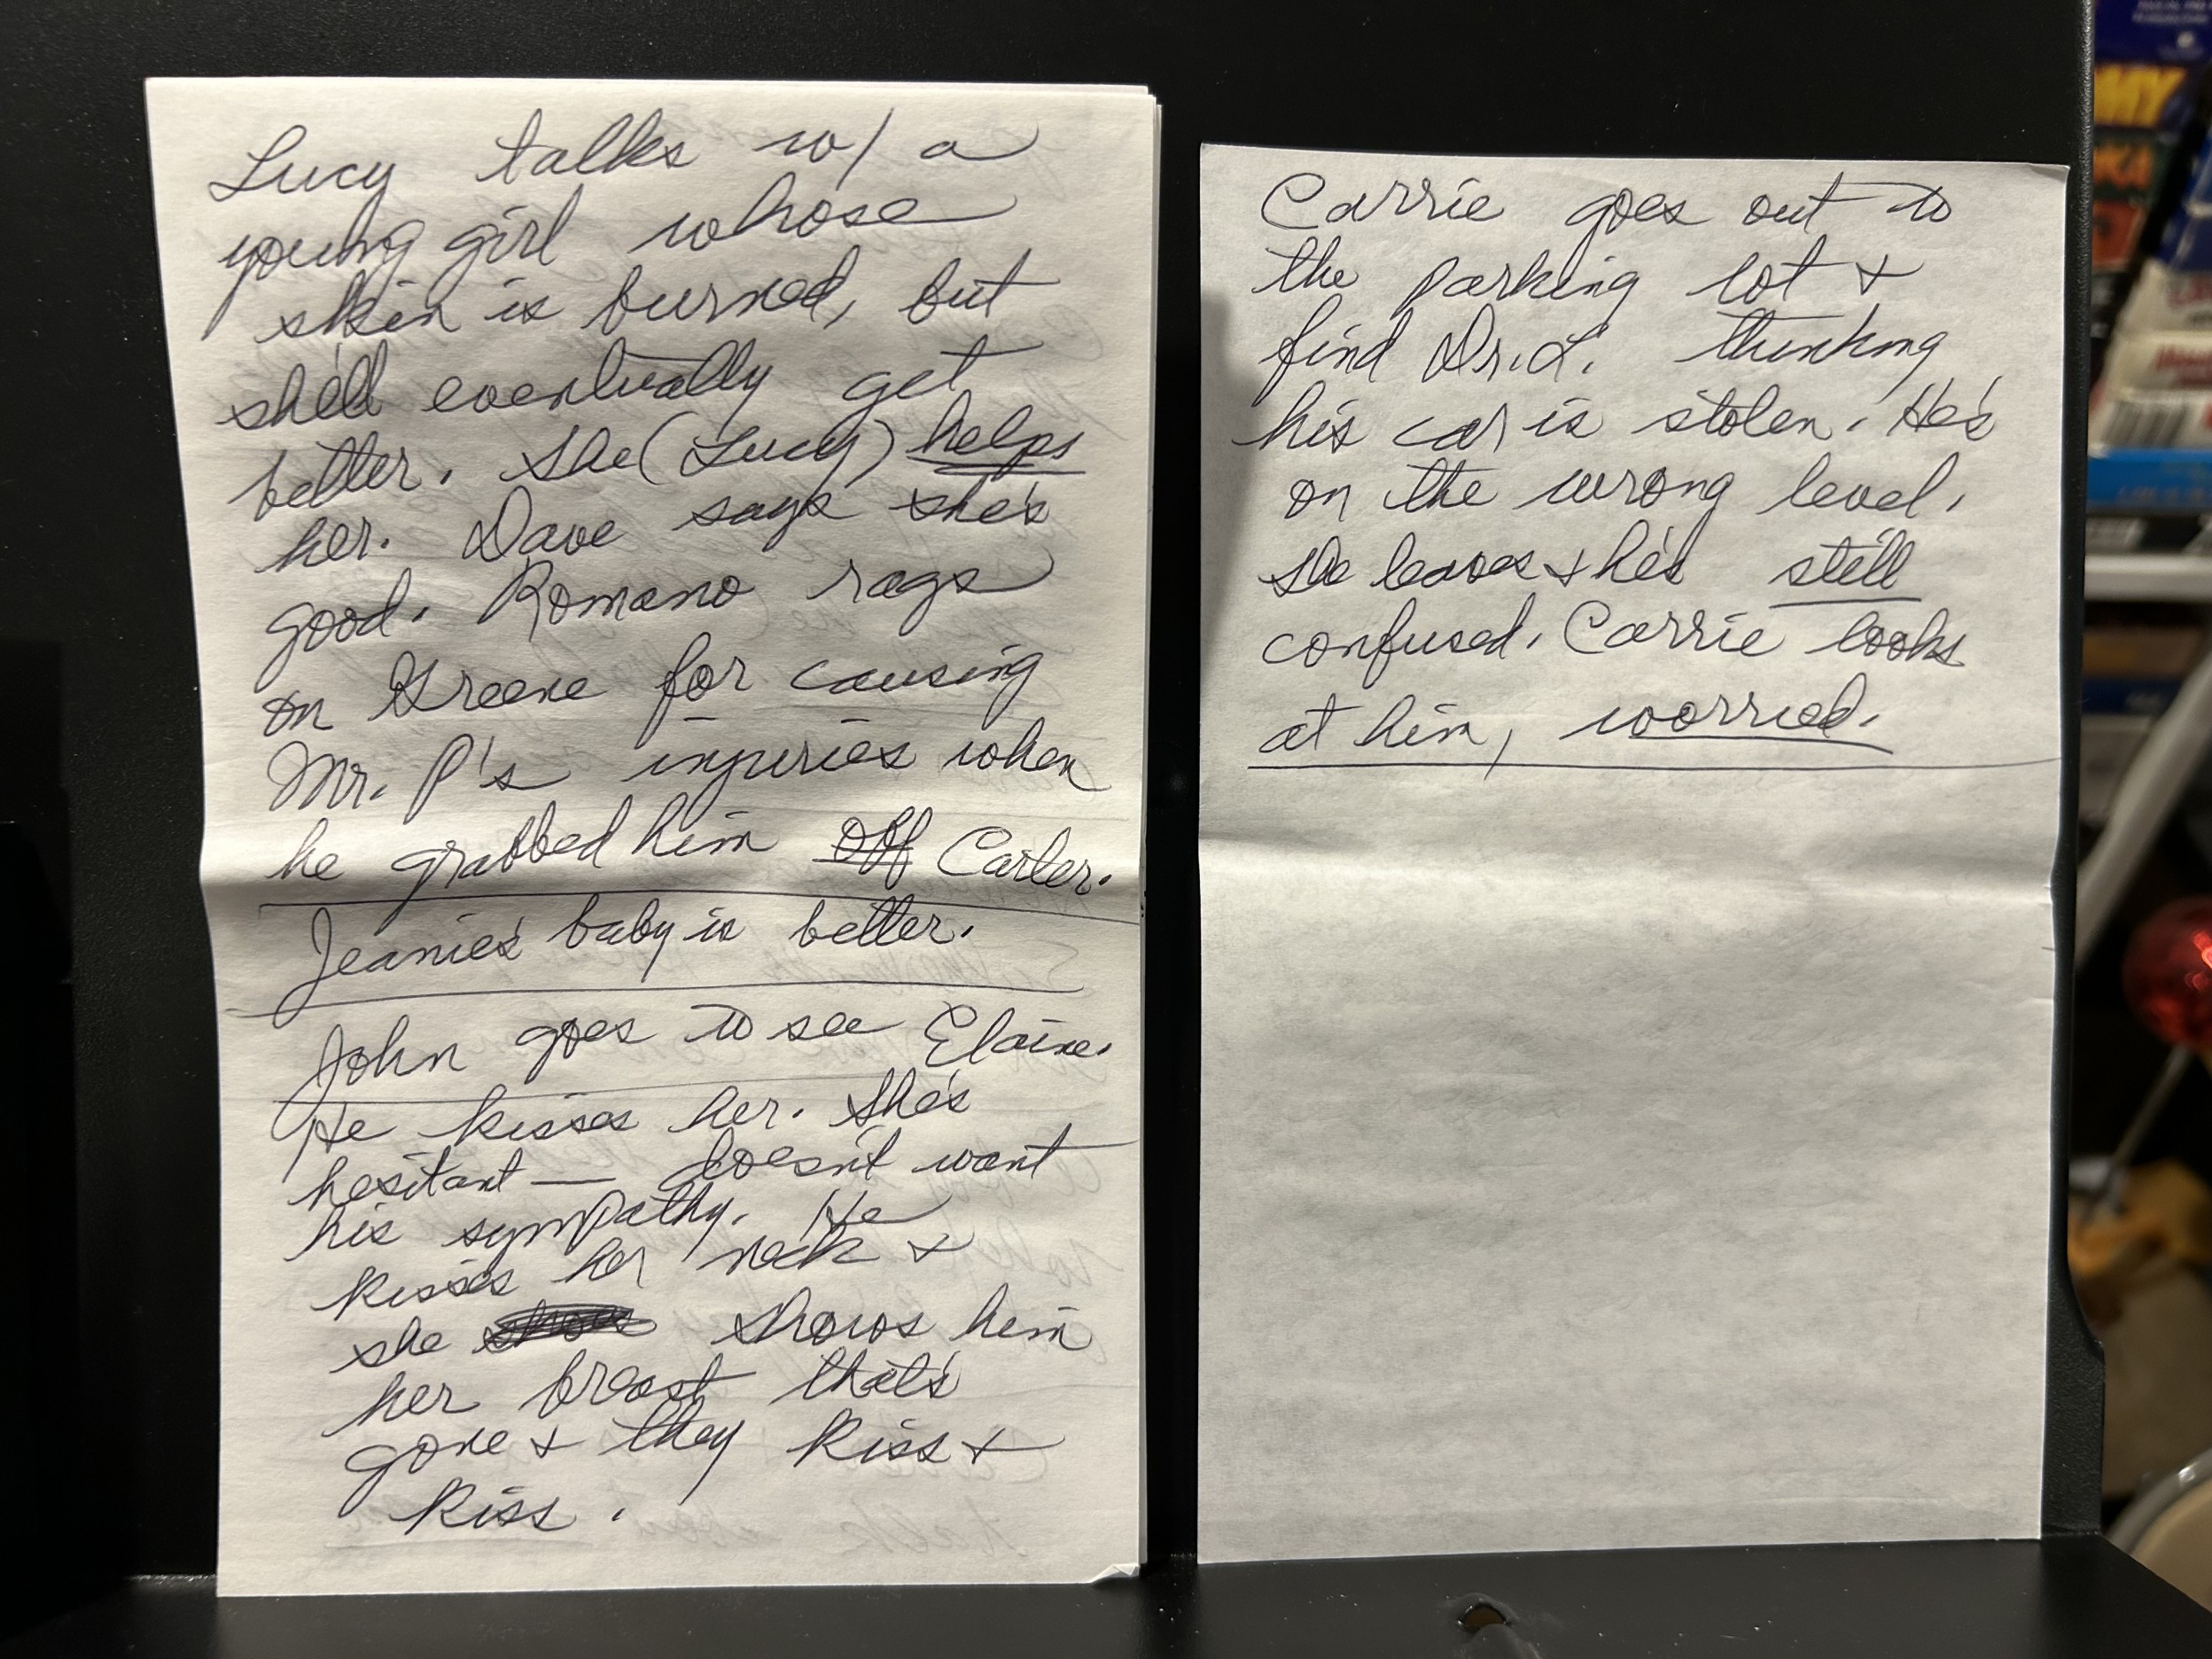 Lucy talks w/ a
young girl whose
skin is burned, but
she'll eventually get
better. She (Lucy) helps
her. Dave says she's
good. Romano rags
on Greene for causing
Mr. P's injuries when
he grabbed him off Carter.
Jeanie's baby is better.
John goes to see Elaine.
He kisses her. She's
hesitant — doesn't want
his sympathy. He
kisses her neck &
she shows him
her breast that's
gone & they kiss &
kiss.
Carrie goes out to
the parking lot &
find Dr. L. thinking
his car is stolen. He's
on the wrong level.
She leaves & he's still
confused. Carrie looks
at him, worried.
MY
KA